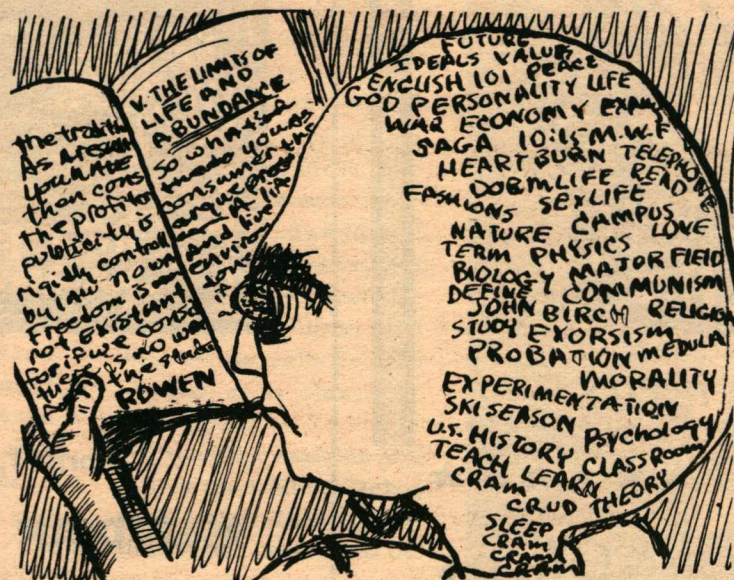 the tradition
As A result
you hate
than cons
the profitor
publicity is
rigidly control
by law now
Freedom is an
not existant
for if we conso
there is no war
the state
ROWEN
V. THE LIMITS OF
LIFE AND
ABUNDANCE
So what and
consument
argue
OF life
And live
environ
tons
if
FUTURE
IDEALS VALUES
ENGLISH 101 PEACE
GOD PERSONALITY LIFE
WAR ECONOMY EXAM
SAGA 10:15 M.W.F
HEARTBURN TELEPHONE
DORMLIFE READ
FASHIONS SEXLIFE
NATURE CAMPUS LOVE
TERM PHYSICS
BIOLOGY MAJOR FIELD
DEFINE COMMUNISM
JOHN BIRCH RELIGION
STUDY EXORSISM
PROBATION MEDULA
MORALITY
EXPERIMENTATION
SKI SEASON Psychology
U.S. HISTORY CLASSROOM
TEACH LEARN
CRAM CRUD THEORY
SLEEP
CRAM
CRAM
CRAM